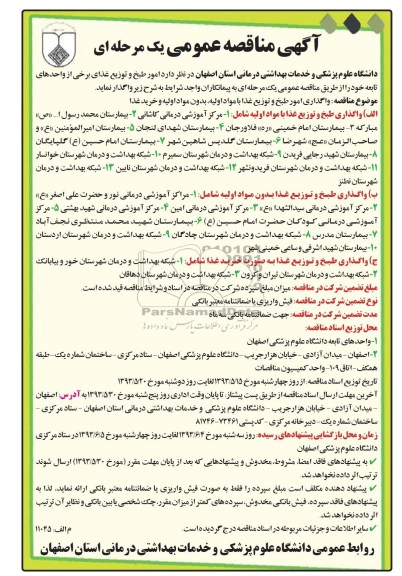 آگهی مناقصه عمومی یک مرحله ای
دانشگاه علوم پزشکی و خدمات بهداشتی درمانی استان اصفهان در نظر دارد امور طبخ و توزیع غذای برخی از واحدهای
تابعه خود را از طریق مناقصه عمومی یک مرحله ای به پیمانکاران واجد شرایط به شرح زیر واگذار نماید.
موضوع مناقصه: واگذاری امور طبخ و توزیع غذا با مواد اولیه، بدون مواد اولیه و خرید غذا
الف) واگذاری طبخ و توزیع غذا با مواد اولیه شامل: ۱- مرکز آموزشی درمانی کاشانی ۲- بیمارستان محمد رسول ا... «ص»
مبارکه ۳- بیمارستان امام خمینی «ره» فلاورجان ۴- بیمارستان شهدای لنجان ۵- بیمارستان امیرالمؤمنین «ع» و
صاحب الزمان «عج» شهرضا ۶- بیمارستان گلدیس شاهین شهر ۷- بیمارستان امام حسین (ع) گلپایگان
۸- بیمارستان شهید رجایی فریدن ۹- شبکه بهداشت و درمان شهرستان سمیرم ۱۰- شبکه بهداشت و درمان شهرستان خوانسار
۱۱- شبکه بهداشت و درمان شهرستان فریدونشهر ۱۲- شبکه بهداشت و درمان شهرستان نایین ۱۳- شبکه بهداشت و درمان
شهرستان نطنز
ب) واگذاری طبخ و توزیع غذا بدون مواد اولیه شامل: ۱- مراکز آموزشی درمانی نور و حضرت علی اصغر «ع»
۲- مرکز آموزشی درمانی سیدالشهدا «ع» ۳- مرکز آموزشی درمانی امین ۴- مرکز آموزشی درمانی شهید بهشتی ۵- مرکز
آموزشی درمانی کودکان حضرت امام حسین (ع) ۶- بیمارستان شهید محمد منتظری نجف آباد
۷- بیمارستان مدرس ۸- شبکه بهداشت و درمان شهرستان چادگان ۹- شبکه بهداشت و درمان شهرستان اردستان
۱۰- بیمارستان شهید اشرفی و ساعی خمینی شهر
ج) واگذاری طبخ و توزیع غذا به صورت خرید غذا شامل: ۱- شبکه بهداشت و درمان شهرستان خور و بیابانک
۲- شبکه بهداشت و درمان شهرستان تیران و کرون ۳- شبکه بهداشت و درمان شهرستان دهاقان
مبلغ تضمین شرکت در مناقصه: میزان مبلغ سپرده شرکت در مناقصه در اسناد و شرایط مناقصه قید شده است.
نوع تضمین شرکت در مناقصه: فیش واریزی یا ضمانتنامه معتبر بانکی
مدت تضمین شرکت در مناقصه: جهت ضمانتنامه بانکی سه ماه
محل توزیع اسناد مناقصه:
۱- واحدهای تابعه دانشگاه علوم پزشکی اصفهان
۲- اصفهان - میدان آزادی - خیابان هزار جریب - دانشگاه علوم پزشکی اصفهان - ستاد مرکزی - ساختمان شماره یک - طبقه
همکف - اتاق ۱۰۹ - واحد کمیسیون مناقصات
تاریخ توزیع اسناد مناقصه: از روز چهارشنبه مورخ ۱۳۹۳/۵/۱۵ لغایت روز دوشنبه مورخ ۱۳۹۳/۵/۲۰
آخرین مهلت ارسال اسناد مناقصه از طریق پست پیشتاز: تا پایان وقت اداری روز پنج شنبه مورخ ۱۳۹۳/۵/۳۰ به آدرس: اصفهان
- میدان آزادی - خیابان هزار جریب - دانشگاه علوم پزشکی و خدمات بهداشتی درمانی استان اصفهان - ستاد مرکزی -
ساختمان شماره یک - دبیرخانه مرکزی - کدپستی ۷۳۴۶۱-۸۱۷۴۶
زمان و محل بازگشایی پیشنهادهای رسیده: روز سه شنبه مورخ ۱۳۹۳/۶/۴ لغایت روز چهارشنبه مورخ ۱۳۹۳/۶/۵ در ستاد مرکزی
دانشگاه علوم پزشکی اصفهان
✓ به پیشنهادهای فاقد امضا، مشروط، مخدوش و پیشنهادهایی که بعد از پایان مهلت مقرر (مورخ ۱۳۹۳/۵/۳۰) ارسال شوند
ترتیب اثر داده نخواهد شد.
✓ پیشنهاد دهنده مکلف است مبلغ سپرده را فقط به صورت فیش واریزی یا ضمانتنامه معتبر بانکی ارائه نماید، لذا به
پیشنهادهای فاقد سپرده، فیش بانکی مخدوش، سپرده های کمتر از میزان مقرر، چک شخصی یا بین بانکی و نظایر آن ترتیب
اثر داده نخواهد شد.
✓ سایر اطلاعات و جزئیات مربوطه در اسناد مناقصه درج گردیده است.
م الف: ۱۱۰۴۵
روابط عمومی دانشگاه علوم پزشکی و خدمات بهداشتی درمانی استان اصفهان